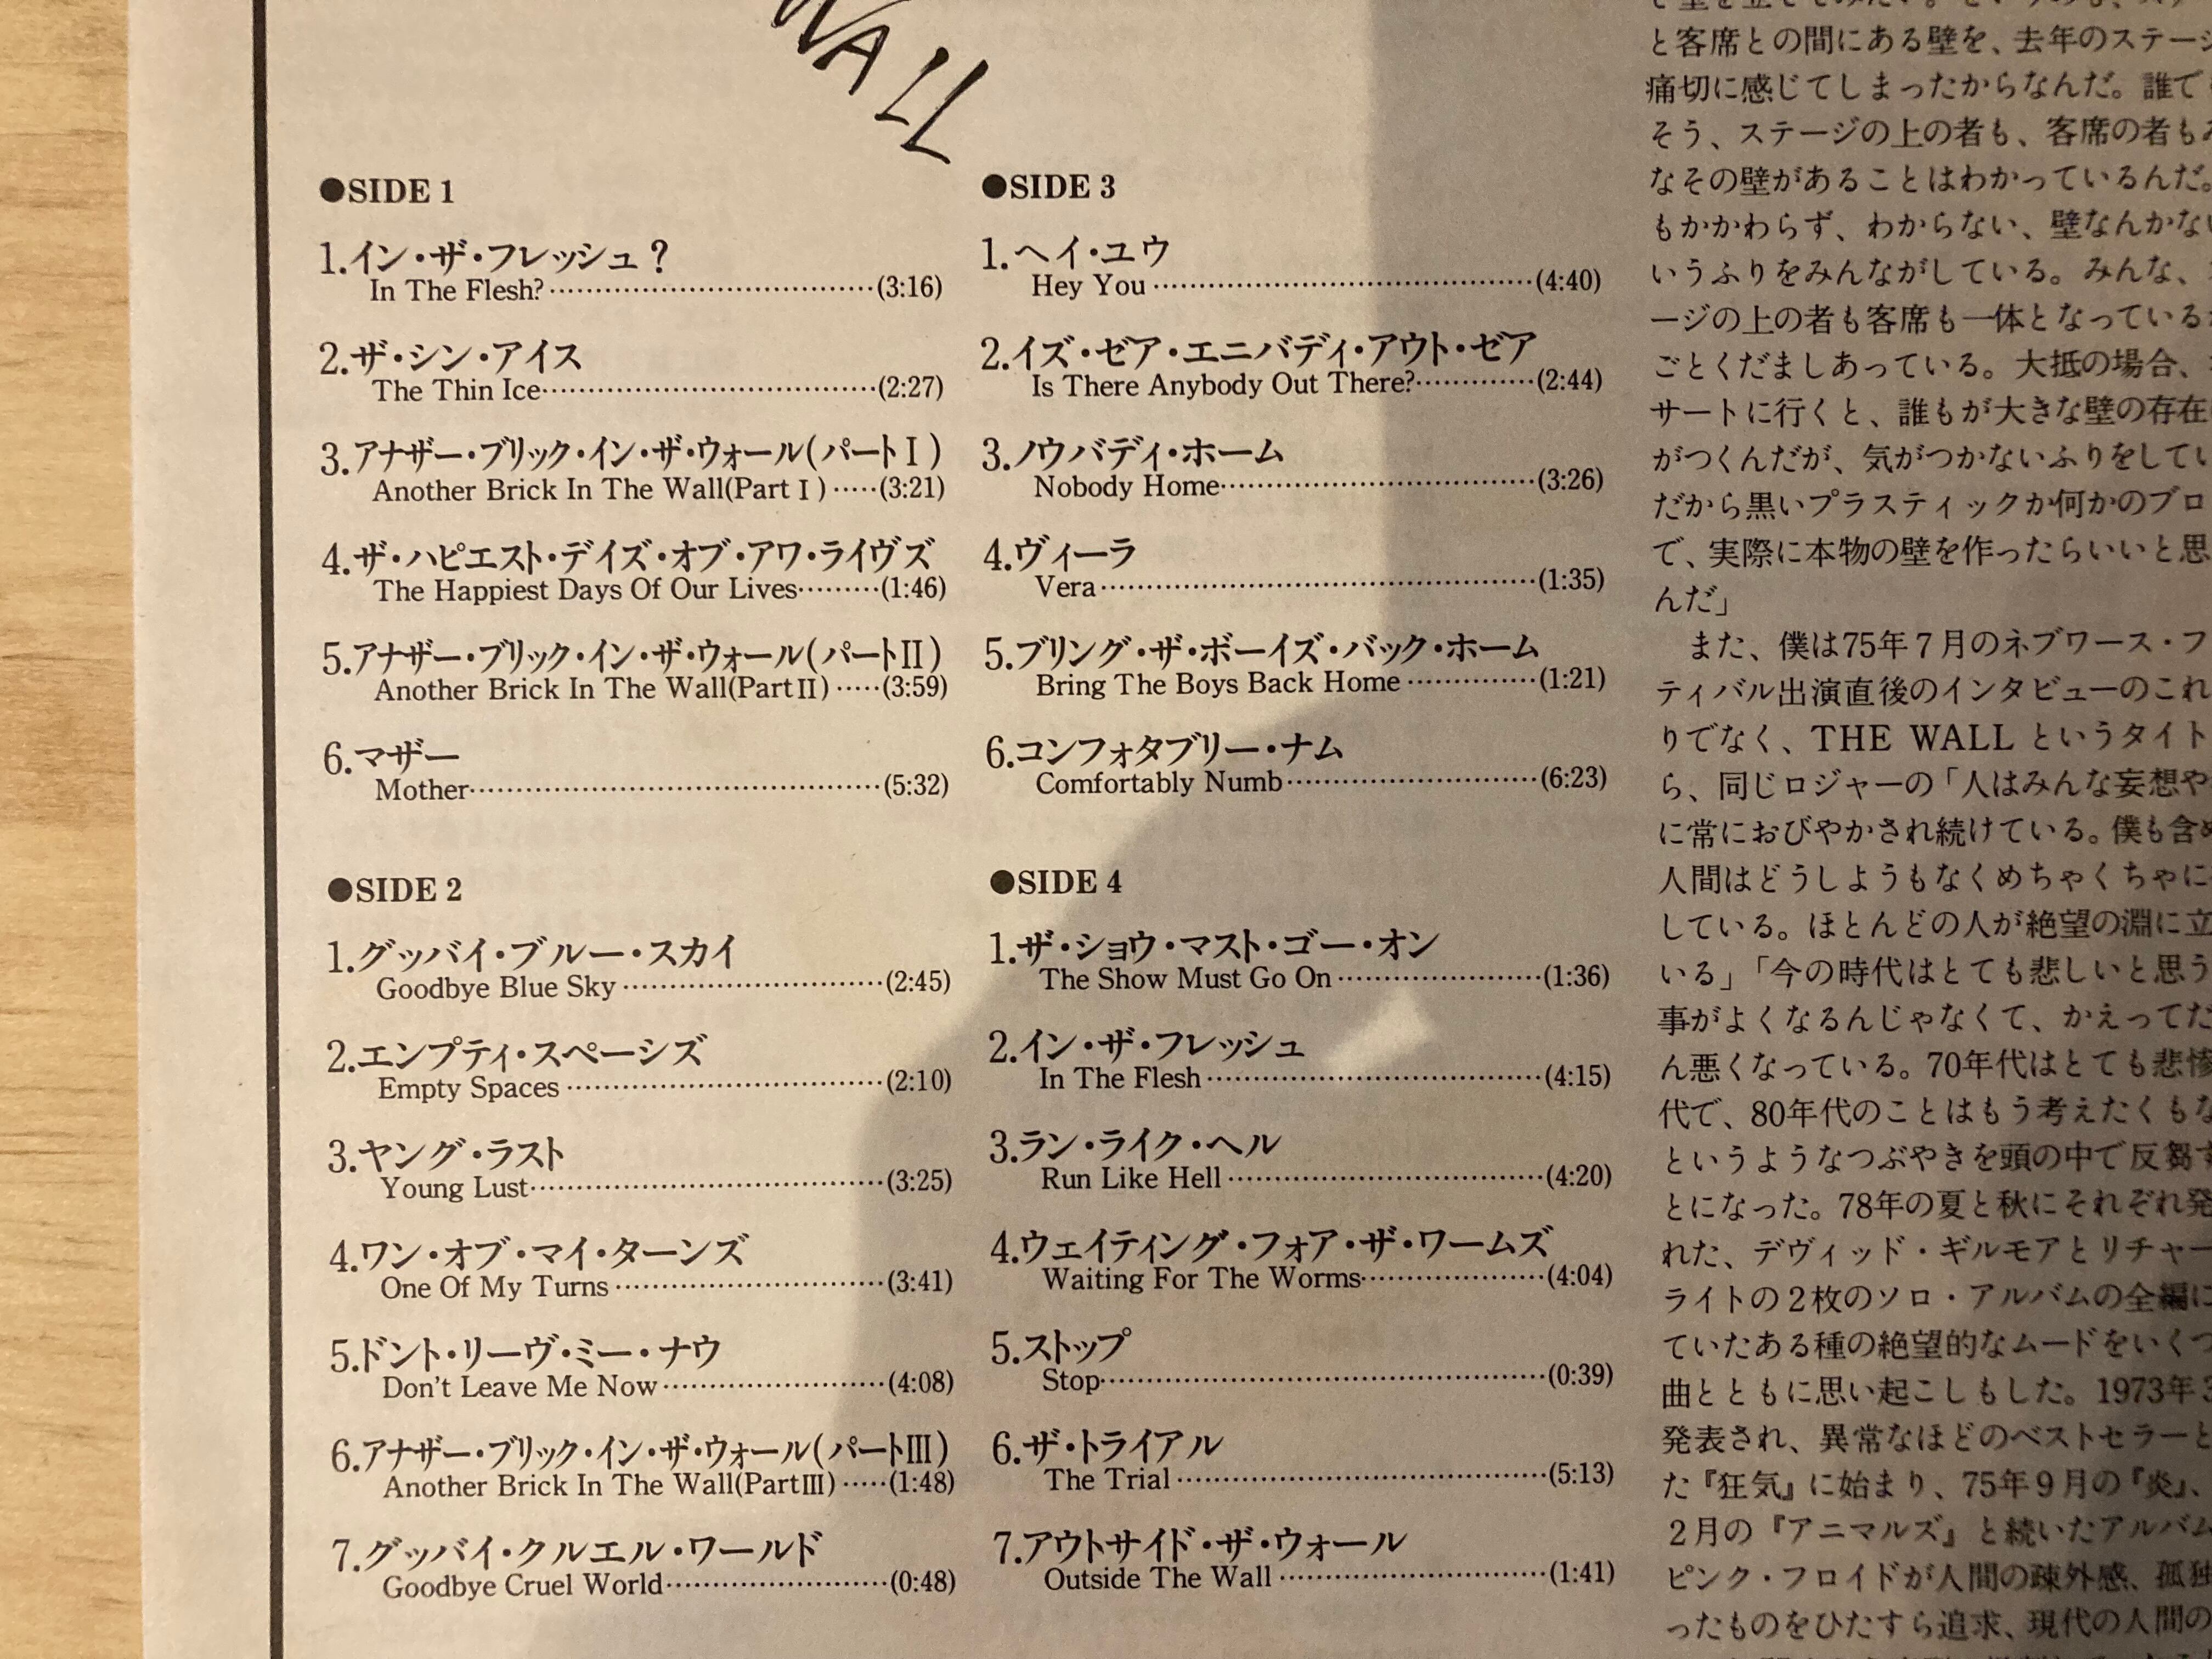 WALL
●SIDE 1
1.イン・ザ・フレッシュ？
In The Flesh?(3:16)
2.ザ・シン・アイス
The Thin Ice(2:27)
3.アナザー・ブリック・イン・ザ・ウォール(パートⅠ)
Another Brick In The Wall(PartⅠ)(3:21)
4.ザ・ハピエスト・デイズ・オブ・アワ・ライヴズ
The Happiest Days Of Our Lives(1:46)
5.アナザー・ブリック・イン・ザ・ウォール(パートⅡ)
Another Brick In The Wall(PartⅡ)(3:59)
6.マザー
Mother(5:32)
●SIDE 2
1.グッバイ・ブルー・スカイ
Goodbye Blue Sky(2:45)
2.エンプティ・スペーシズ
Empty Spaces(2:10)
3.ヤング・ラスト
Young Lust(3:25)
4.ワン・オブ・マイ・ターンズ
One Of My Turns(3:41)
5.ドント・リーヴ・ミー・ナウ
Don't Leave Me Now(4:08)
6.アナザー・ブリック・イン・ザ・ウォール(パートⅢ)
Another Brick In The Wall(PartⅢ)(1:48)
7.グッバイ・クルエル・ワールド
Goodbye Cruel World(0:48)
●SIDE 3
1.ヘイ・ユウ
Hey You(4:40)
2.イズ・ゼア・エニバディ・アウト・ゼア
Is There Anybody Out There?(2:44)
3.ノウバディ・ホーム
Nobody Home(3:26)
4.ヴィーラ
Vera(1:35)
5.ブリング・ザ・ボーイズ・バック・ホーム
Bring The Boys Back Home(1:21)
6.コンフォタブリー・ナム
Comfortably Numb(6:23)
●SIDE 4
1.ザ・ショウ・マスト・ゴー・オン
The Show Must Go On(1:36)
2.イン・ザ・フレッシュ
In The Flesh(4:15)
3.ラン・ライク・ヘル
Run Like Hell(4:20)
4.ウェイティング・フォア・ザ・ワームズ
Waiting For The Worms(4:04)
5.ストップ
Stop(0:39)
6.ザ・トライアル
The Trial(5:13)
7.アウトサイド・ザ・ウォール
Outside The Wall(1:41)
と客席との間にある壁を、去年のステージ
痛切に感じてしまったからなんだ。誰で
そう、ステージの上の者も、客席の者も
なその壁があることはわかっているんだ。
もかかわらず、わからない、壁なんかない
いうふりをみんながしている。みんな、
ージの上の者も客席も一体となっている
ごとくだましあっている。大抵の場合、
サートに行くと、誰もが大きな壁の存在
がつくんだが、気がつかないふりをしてい
だから黒いプラスティックか何かのブロ
で、実際に本物の壁を作ったらいいと思
んだ」
また、僕は75年７月のネブワース・フ
ティバル出演直後のインタビューのこれ
りでなく、THE WALL というタイト
ら、同じロジャーの「人はみんな妄想や
に常におびやかされ続けている。僕も含め
人間はどうしようもなくめちゃくちゃに
している。ほとんどの人が絶望の淵に立
いる」「今の時代はとても悲しいと思う
事がよくなるんじゃなくて、かえってだ
ん悪くなっている。70年代はとても悲惨
代で、80年代のことはもう考えたくもな
というようなつぶやきを頭の中で反芻す
とになった。78年の夏と秋にそれぞれ発
れた、デヴィッド・ギルモアとリチャー
ライトの２枚のソロ・アルバムの全編に
ていたある種の絶望的なムードをいくつ
曲とともに思い起こしもした。1973年3
発表され、異常なほどのベストセラーと
た『狂気』に始まり、75年９月の『炎』、
２月の『アニマルズ』と続いたアルバム
ピンク・フロイドが人間の疎外感、孤独
ったものをひたすら追求、現代の人間の